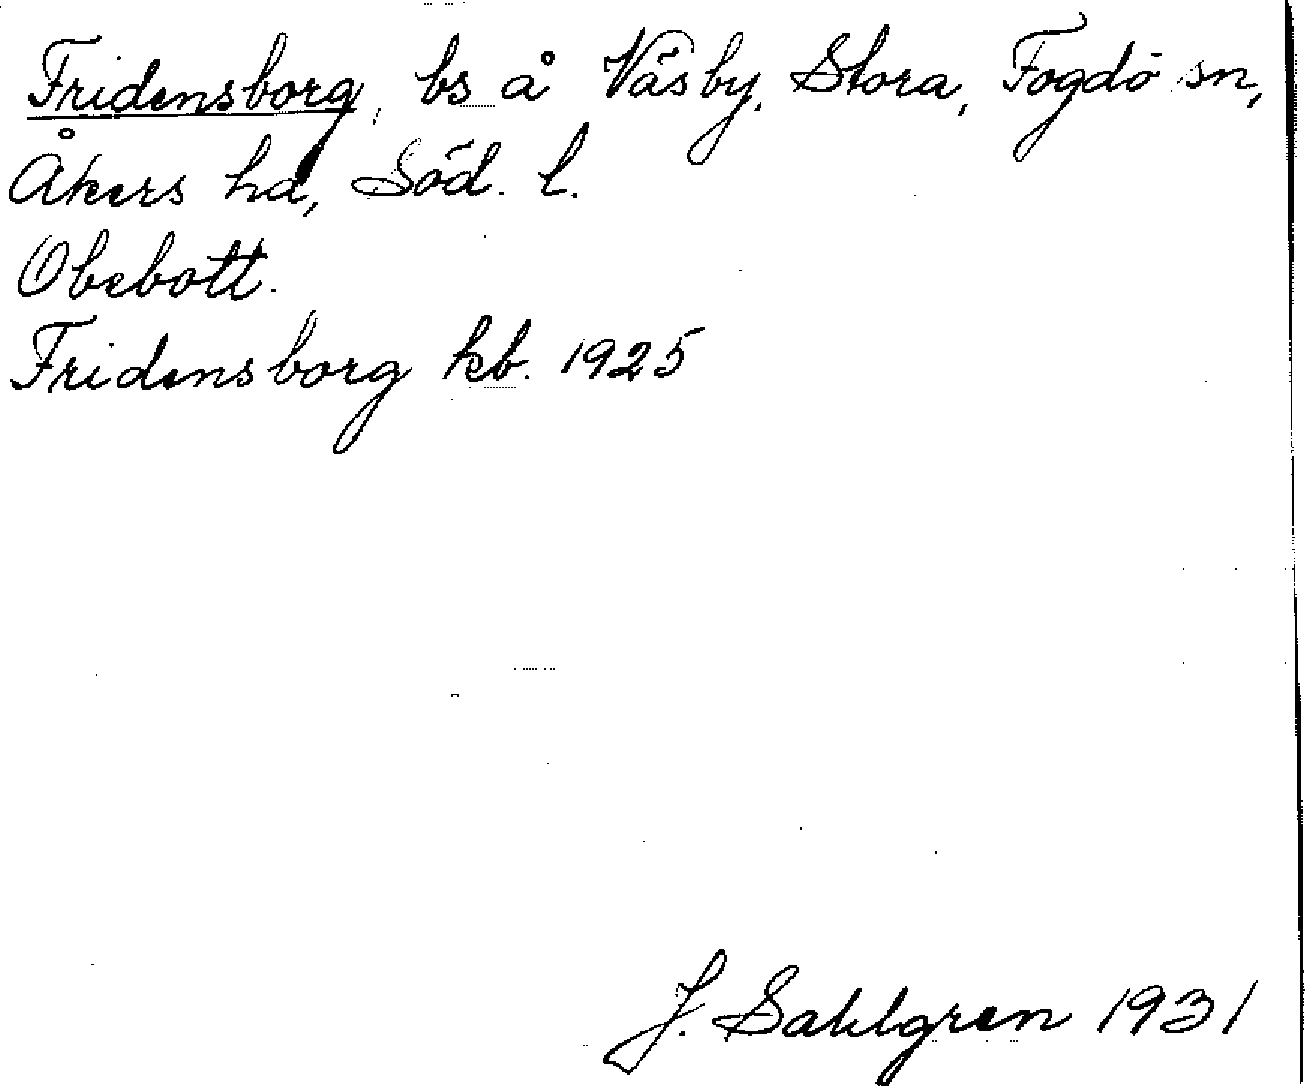 Fridensborg, bs å Väsby, Stora, Fogdö sn,
Åkers hd, Söd. l.
Obebott.
Fridensborg kb. 1925
J. Sahlgren 1931